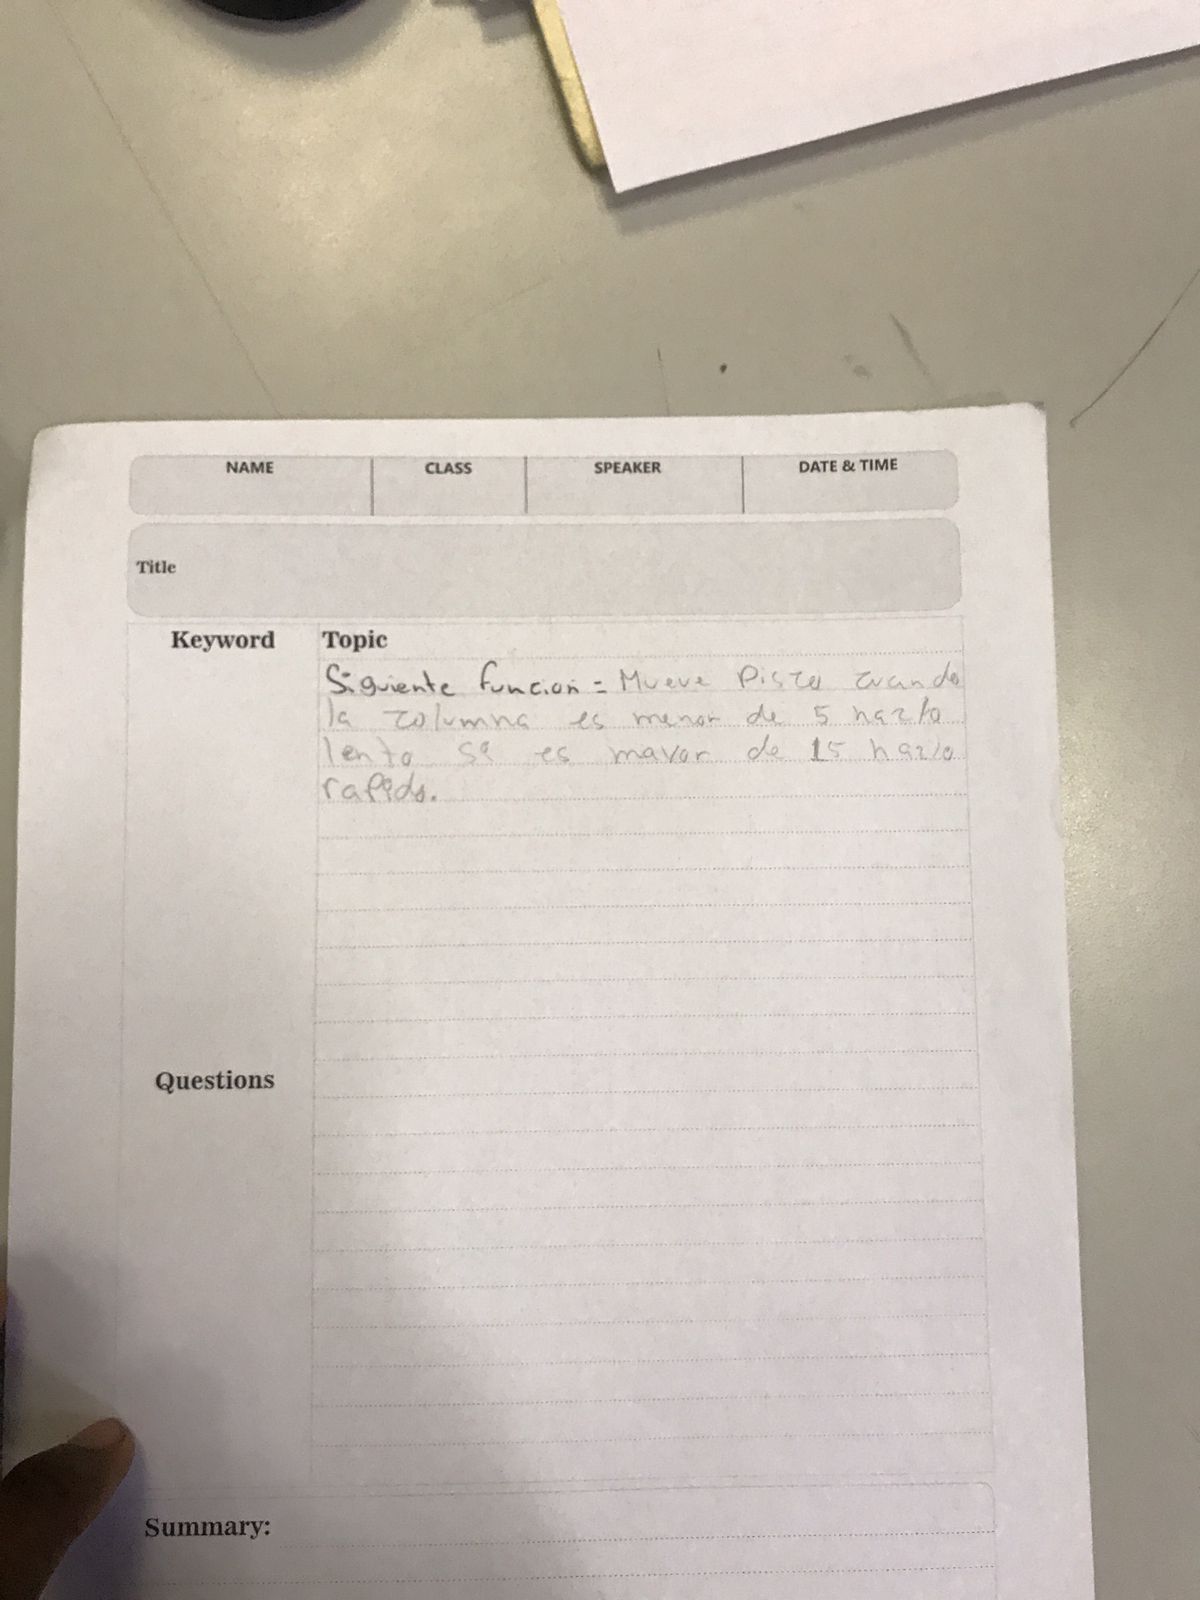 NAME CLASS SPEAKER DATE & TIME
Title
Keyword Topic
Siguiente funcion = Mueve Pista cuando
la columna es menor de 5 hazlo
lento si es mayor de 15 hazlo
rapido.
Questions
Summary: